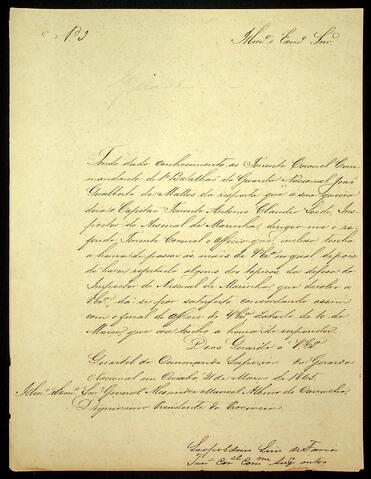 Nº 9
Illmº e Exmº Snr.
Tendo dado conhecimento ao Tenente Coronel Com-
mandante do 1º Batalhão da Guarda Nacional João
Gualberto de Mattos da resposta que a sua queixa
deu o Capitão Tenente Antonio Claudio Soido, Ins-
pector do Arsenal de Marinha, dirigio-me o re-
ferido Tenente Coronel o officio que incluso tenho
a honra de passar ás mãos de V. Exª no qual, depois
de haver refutado alguns dos topicos da defesa do
Inspector do Arsenal de Marinha que devolvo a
V. Exª, dá-se por satisfeito concordando assim
com o final do officio de V. Exª datado de 10 de
Março, que ora tenho a honra de responder.
Deos Guarde a V. Exª
Quartel do Commando Superior da Guarda
Nacional em Cuiabá 21 de Março de 1865.
Illmº e Exmº Snr. General Alexandre Manoel Albino de Carvalho
Dignissimo Presidente da Provincia
Leopoldino Lino de Faria
Tenº Corel Comme Supr